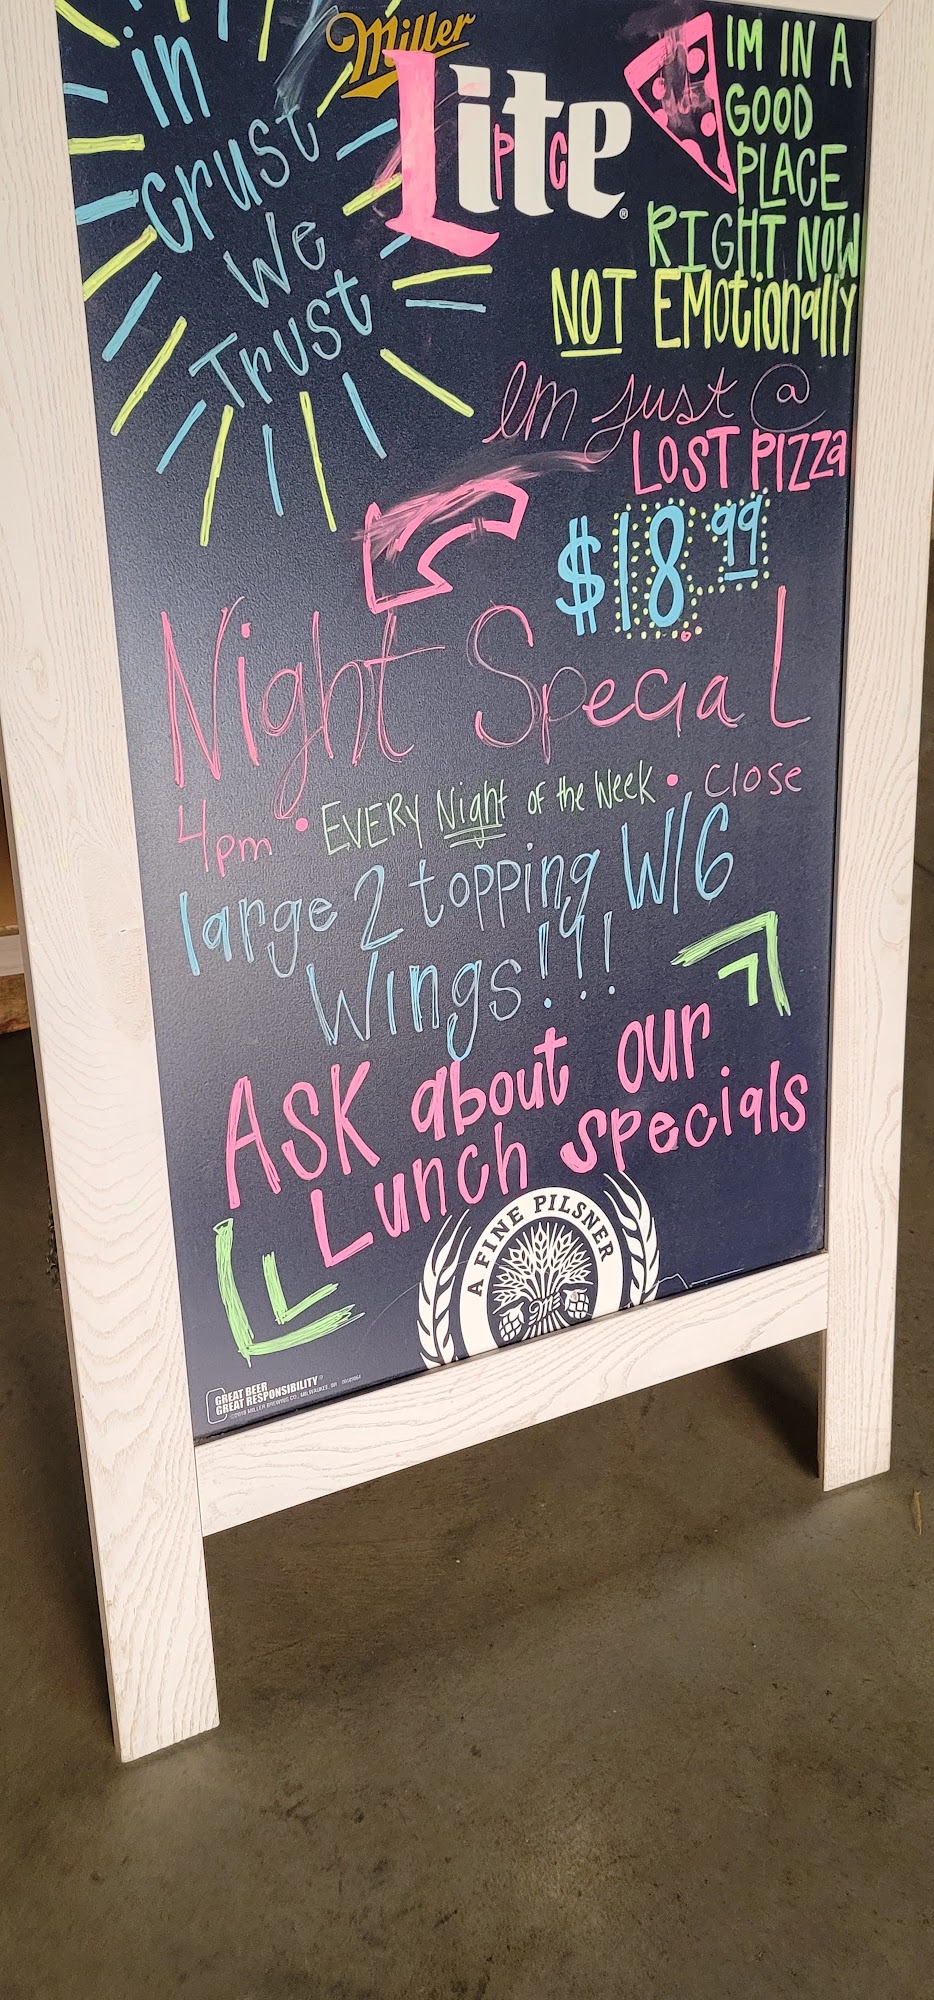 in
Crust
We
Trust
Miller
Lite
IM IN A
GOOD
PLACE
RIGHT NOW
NOT EMOtionally
Im just @
LOST PIZZa
$18.99
Night Special
4pm • EVERY Night OF the Week • Close
large 2 topping W/6
Wings!!!
ASK about our
Lunch specials
A FINE PILSNER
GREAT BEER
GREAT RESPONSIBILITY®